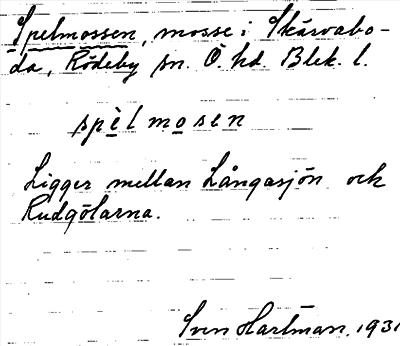 Spelmossen, mosse i Skärvabo-
da, Rödeby sn. Ö. hd. Blek. l.
spèl mosen
Ligger mellan Långasjön och
Rudgölarna.
Sven Hartman, 1931